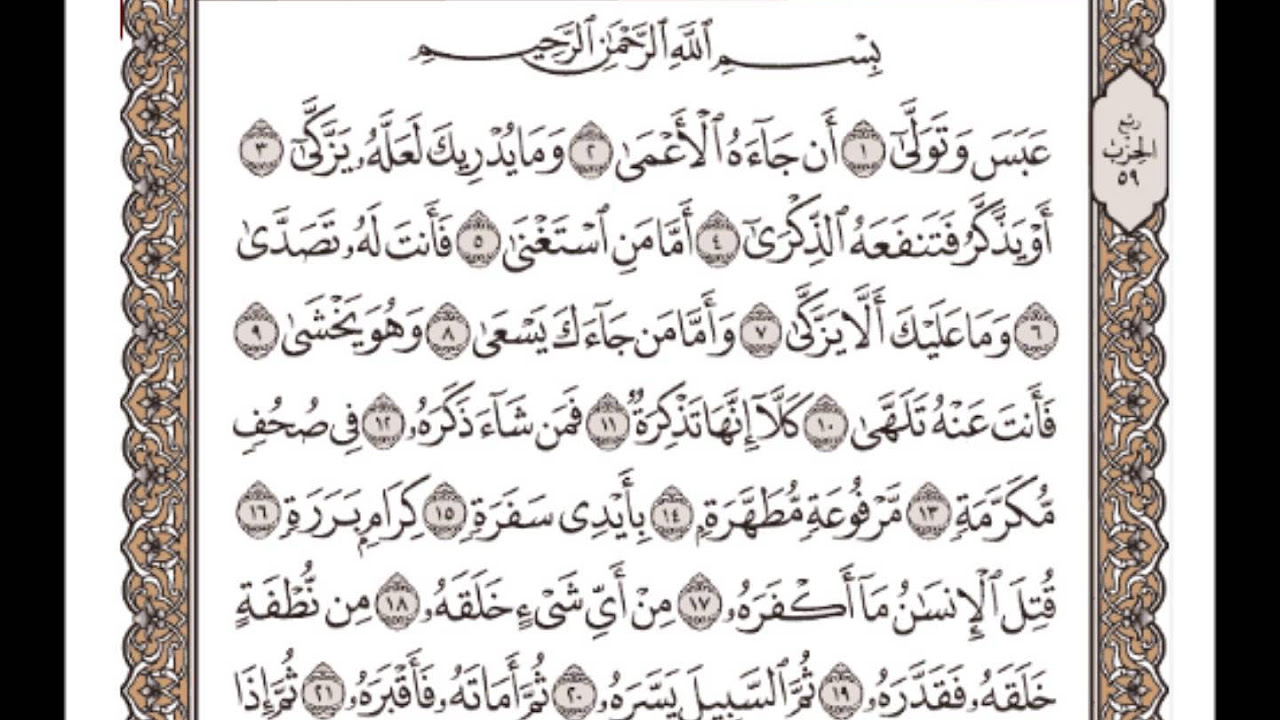 بِسْمِ ٱللَّهِ ٱلرَّحْمَٰنِ ٱلرَّحِيمِ
عَبَسَ وَتَوَلَّىٰٓ ١ أَن جَآءَهُ ٱلْأَعْمَىٰ ٢ وَمَا يُدْرِيكَ لَعَلَّهُۥ يَزَّكَّىٰٓ ٣
أَوْ يَذَّكَّرُ فَتَنفَعَهُ ٱلذِّكْرَىٰٓ ٤ أَمَّا مَنِ ٱسْتَغْنَىٰ ٥ فَأَنتَ لَهُۥ تَصَدَّىٰ
٦ وَمَا عَلَيْكَ أَلَّا يَزَّكَّىٰ ٧ وَأَمَّا مَن جَآءَكَ يَسْعَىٰ ٨ وَهُوَ يَخْشَىٰ ٩
فَأَنتَ عَنْهُ تَلَهَّىٰ ١٠ كَلَّآ إِنَّهَا تَذْكِرَةٌ ١١ فَمَن شَآءَ ذَكَرَهُۥ ١٢ فِى صُحُفٍ
مُّكَرَّمَةٍ ١٣ مَّرْفُوعَةٍ مُّطَهَّرَةٍۭ ١٤ بِأَيْدِى سَفَرَةٍ ١٥ كِرَامٍۭ بَرَرَةٍ ١٦
قُتِلَ ٱلْإِنسَٰنُ مَآ أَكْفَرَهُۥ ١٧ مِنْ أَىِّ شَىْءٍ خَلَقَهُۥ ١٨ مِن نُّطْفَةٍ
خَلَقَهُۥ فَقَدَّرَهُۥ ١٩ ثُمَّ ٱلسَّبِيلَ يَسَّرَهُۥ ٢٠ ثُمَّ أَمَاتَهُۥ فَأَقْبَرَهُۥ ٢١ ثُمَّ إِذَا
ربع
الحزب
٥٩